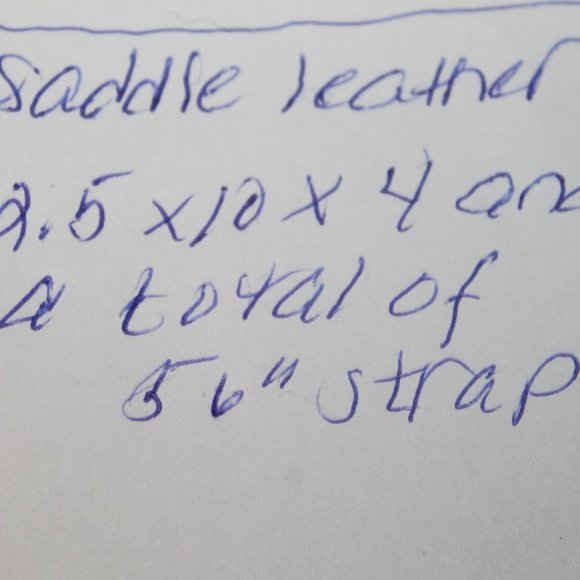 Saddle leather
9.5 x 10 x 4 and
a total of
56" strap